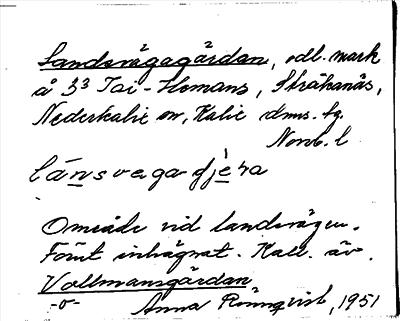 Landsvägagärdan, odl. mark
å 3³ Tai-Homans, Stråkanäs,
Nederkalix sn, Kalix dms. tg.
Norrb. l
länsvaga djèra
Område vid landsvägen.
Förut inhägnat. Kall. äv.
Vollmansgärdan
-o-
Anna Rönnqvist, 1951